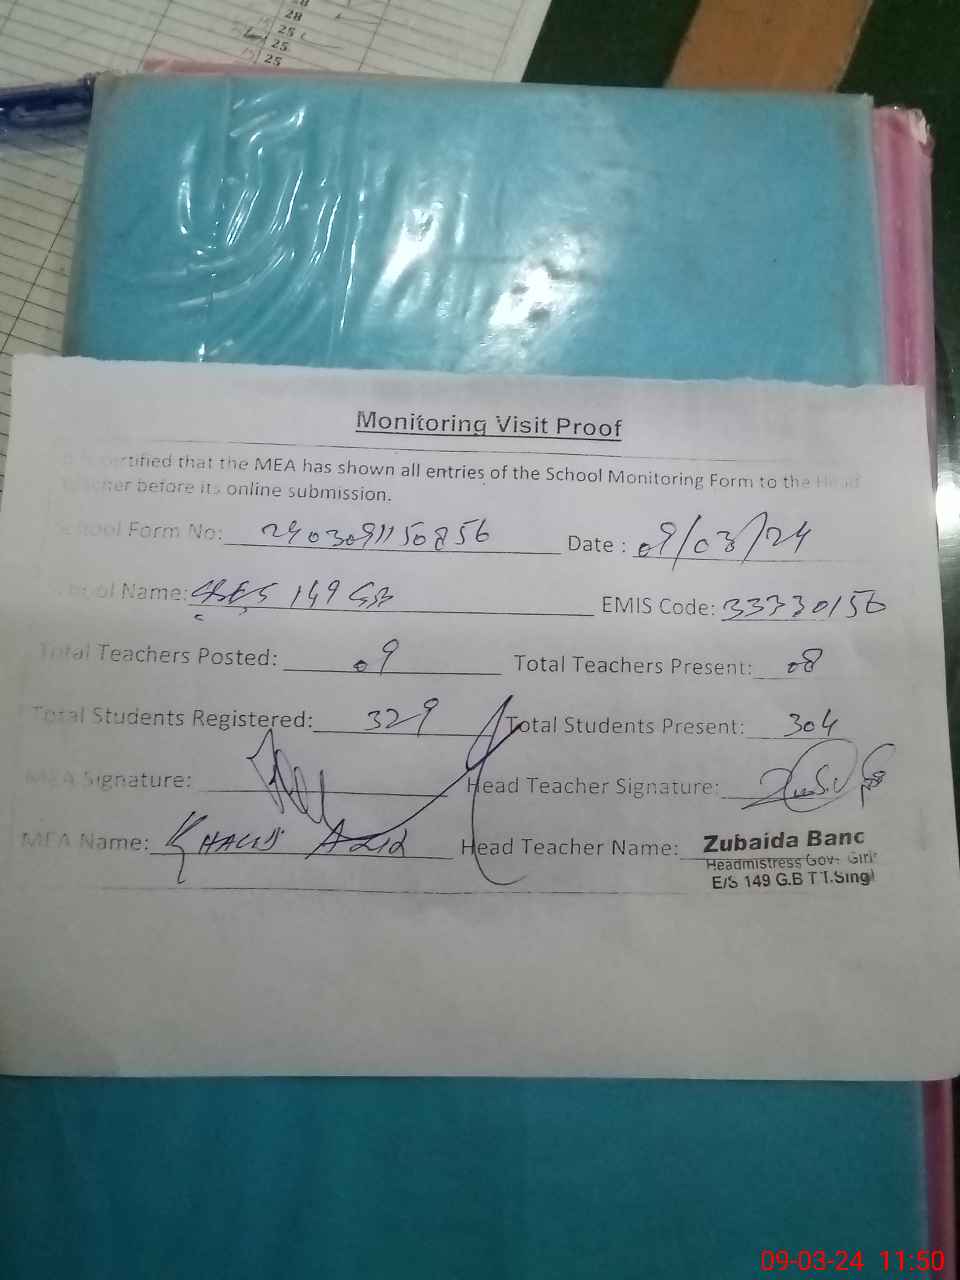 28
25
25
25
Monitoring Visit Proof
certified that the MEA has shown all entries of the School Monitoring Form to the Head
Teacher before its online submission.
School Form No: 2403091150856 Date : 09/03/24
School Name: GGES 149 GB EMIS Code: 33330156
Total Teachers Posted: 09 Total Teachers Present: 08
Total Students Registered: 329 Total Students Present: 304
MEA Signature: Head Teacher Signature:
MEA Name: KHALID AZIZ Head Teacher Name: Zubaida Banc
Headmistress Gov- Girls
E/S 149 G.B T.T.Singh
09-03-24 11:50